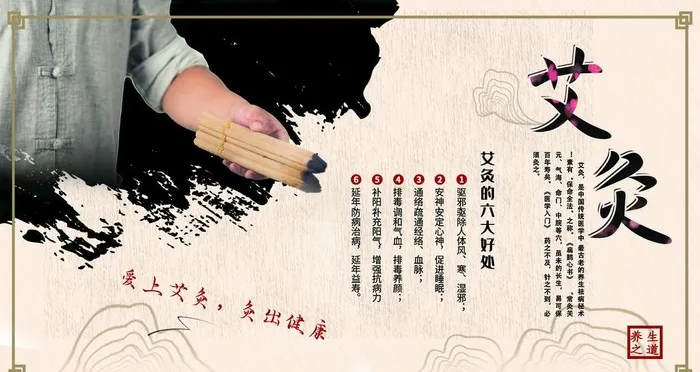 艾灸
艾灸，是中国传统医学中最古老的养生祛病秘术
！素有“保命全法”之称，《扁鹊心书》“常灸关
元、气海、命门、中脘等穴，虽未的长生，易可保
百年寿矣，《医学入门》药之不及，针之不到，必
须灸之。
艾灸的六大好处
1 驱邪驱除人体风、寒、湿邪；
2 安神安定心神，促进睡眠；
3 通络疏通经络、血脉；
4 排毒调和气血，排毒养颜；
5 补阳补充阳气，增强抗病力
6 延年防病治病，延年益寿。
爱上艾灸，灸出健康
养生之道